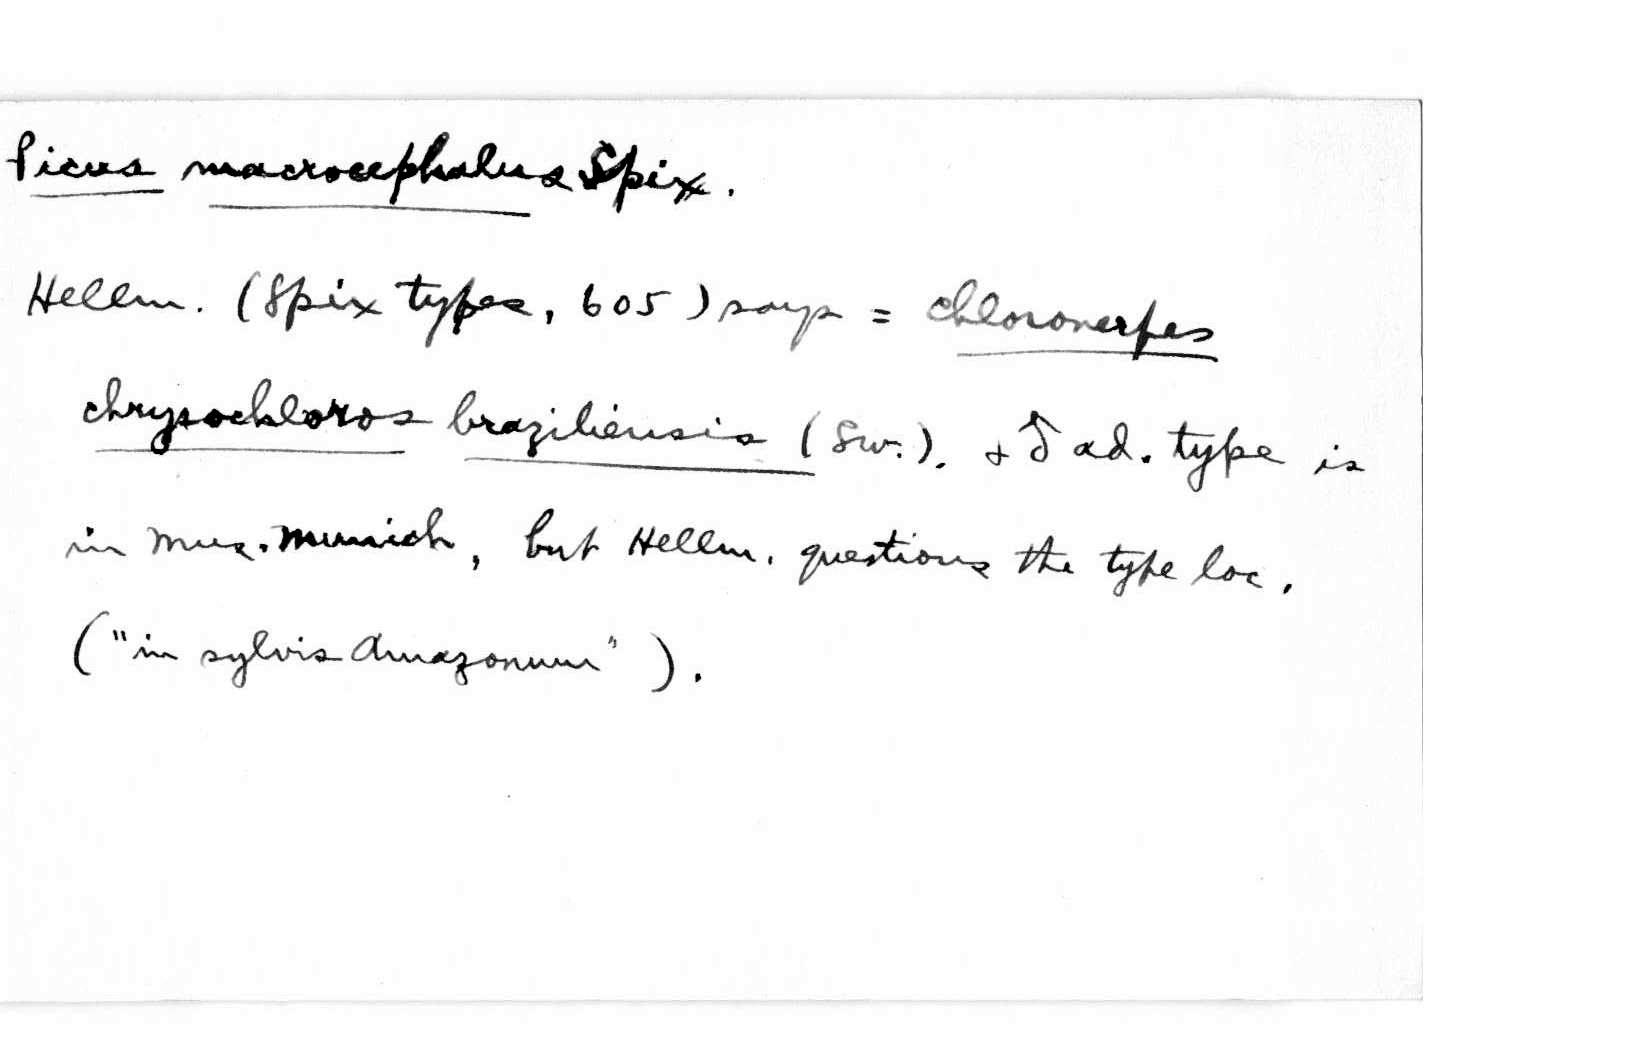 Picus macrocephalus Spix.
Hellm. (Spix types, 605) says = Chloronerpes
chrysochloros braziliensis (Sw.). & ♂ ad. type is
in Mus. Munich, but Hellm. questions the type loc.
("in sylvis Amazonum").